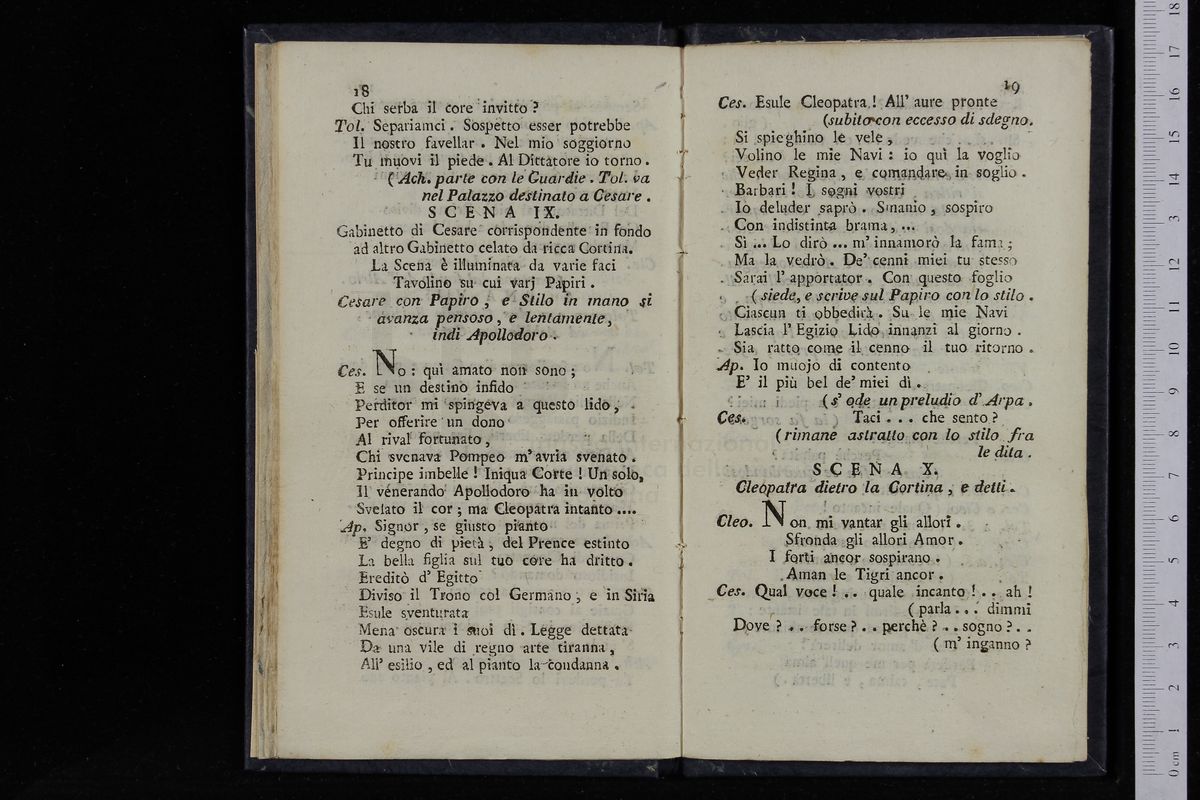 18
Chi serba il core invitto?
Tol. Separiamci. Sospetto esser potrebbe
Il nostro favellar. Nel mio soggiorno
Tu muovi il piede. Al Dittatore io torno.
(Ach. parte con le Guardie. Tol. va
nel Palazzo destinato a Cesare.
SCENA IX.
Gabinetto di Cesare corrispondente in fondo
ad altro Gabinetto celato da ricca Cortina.
La Scena è illuminata da varie faci
Tavolino su cui varj Papiri.
Cesare con Papiro, e Stilo in mano si
avanza pensoso, e lentamente,
indi Apollodoro.
Ces. No: quì amato non sono;
E se un destino infido
Perditor mi spingeva a questo lido,
Per offerire un dono
Al rival fortunato,
Chi svenava Pompeo m'avria svenato.
Principe imbelle! Iniqua Corte! Un solo,
Il venerando Apollodoro ha in volto
Svelato il cor; ma Cleopatra intanto ....
Ap. Signor, se giusto pianto
E' degno di pietà, del Prence estinto
La bella figlia sul tuo core ha dritto.
Ereditò d'Egitto
Diviso il Trono col Germano, e in Siria
Esule sventurata
Mena oscura i suoi dì. Legge dettata
Da una vile di regno arte tiranna,
All' esilio, ed al pianto la condanna.
19
Ces. Esule Cleopatra! All' aure pronte
(subito con eccesso di sdegno.
Si spieghino le vele,
Volino le mie Navi: io quì la voglio
Veder Regina, e comandare in soglio.
Barbari! I sogni vostri
Io deluder saprò. Smanio, sospiro
Con indistinta brama, ...
Sì ... Lo dirò ... m'innamorò la fama;
Ma la vedrò. De' cenni miei tu stesso
Sarai l'apportator. Con questo foglio
(siede, e scrive sul Papiro con lo stilo.
Ciascun ti obbedirà. Su le mie Navi
Lascia l'Egizio Lido innanzi al giorno.
Sia ratto come il cenno il tuo ritorno.
Ap. Io muojo di contento
E' il più bel de' miei dì.
(s'ode un preludio d'Arpa.
Ces. Taci... che sento?
(rimane astratto con lo stilo fra
le dita.
SCENA X.
Cleopatra dietro la Cortina, e detti.
Cleo. Non mi vantar gli allori.
Sfronda gli allori Amor.
I forti ancor sospirano.
Aman le Tigri ancor.
Ces. Qual voce! .. quale incanto! .. ah!
(parla... dimmi
Dove? .. forse? .. perchè? .. sogno? ..
(m'inganno?